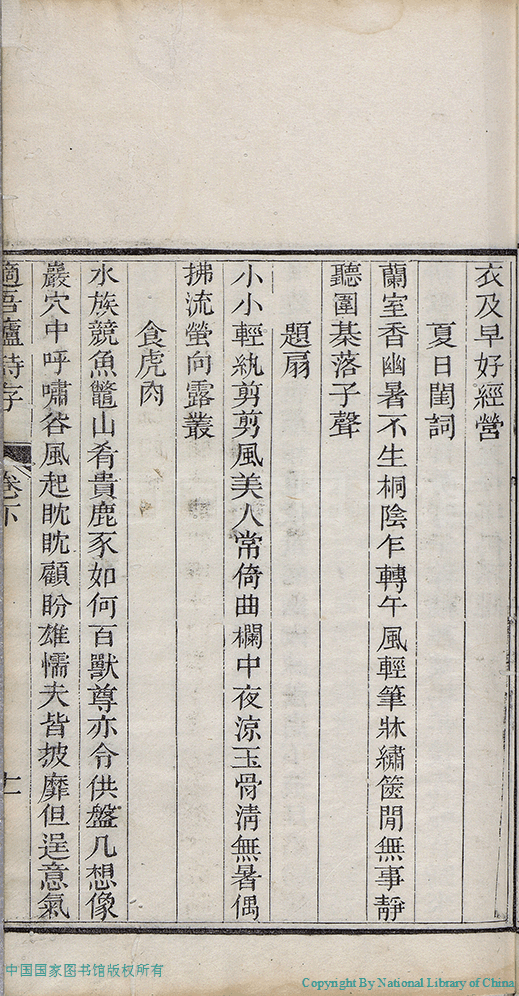 衣及早好經營
夏日閨詞
蘭室香幽暑不生桐陰乍轉午風輕筆牀繡篋閒無事靜
聽圍棊落子聲
題扇
小小輕紈剪剪風美人常倚曲欄中夜涼玉骨淸無暑偶
拂流螢向露叢
食虎肉
水族競魚鼈山肴貴鹿豕如何百獸尊亦令供盤几想像
巖穴中呼嘯谷風起眈眈顧盼雄懦夫皆披靡但逞意氣
適吾廬詩存
卷下
中国国家图书馆版权所有
Copyright By National Library of China